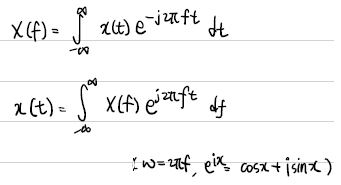 X(f) = ∫_{-∞}^{∞} x(t) e^{-j2πft} dt
x(t) = ∫_{-∞}^{∞} X(f) e^{j2πft} df
: w = 2πf, e^{ix} = cosx + jsinx )